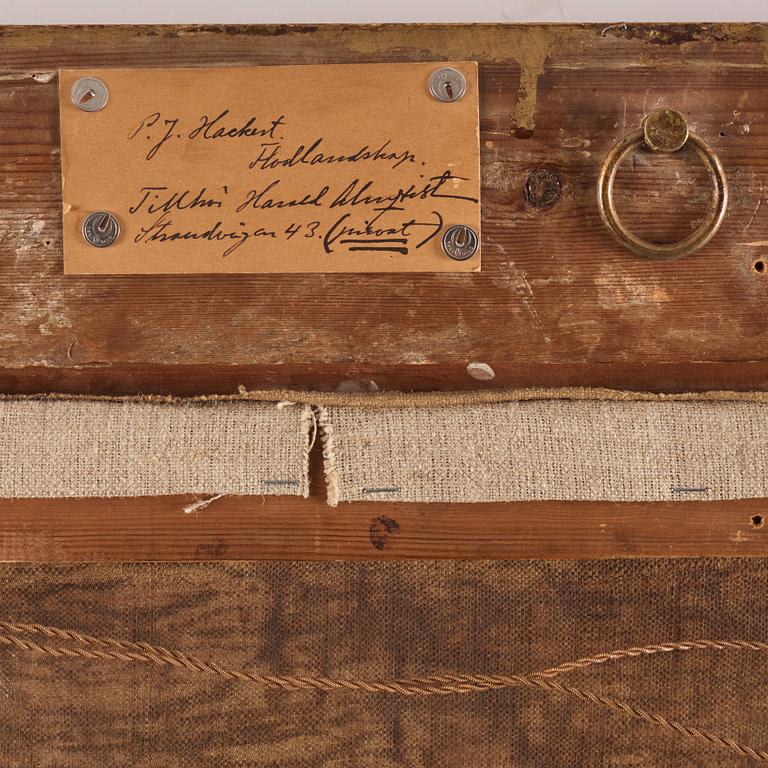 P. J. Hackert.
Flodlandskap.
Tillhör Harald Almqvist
Strandvägen 43. (privat)